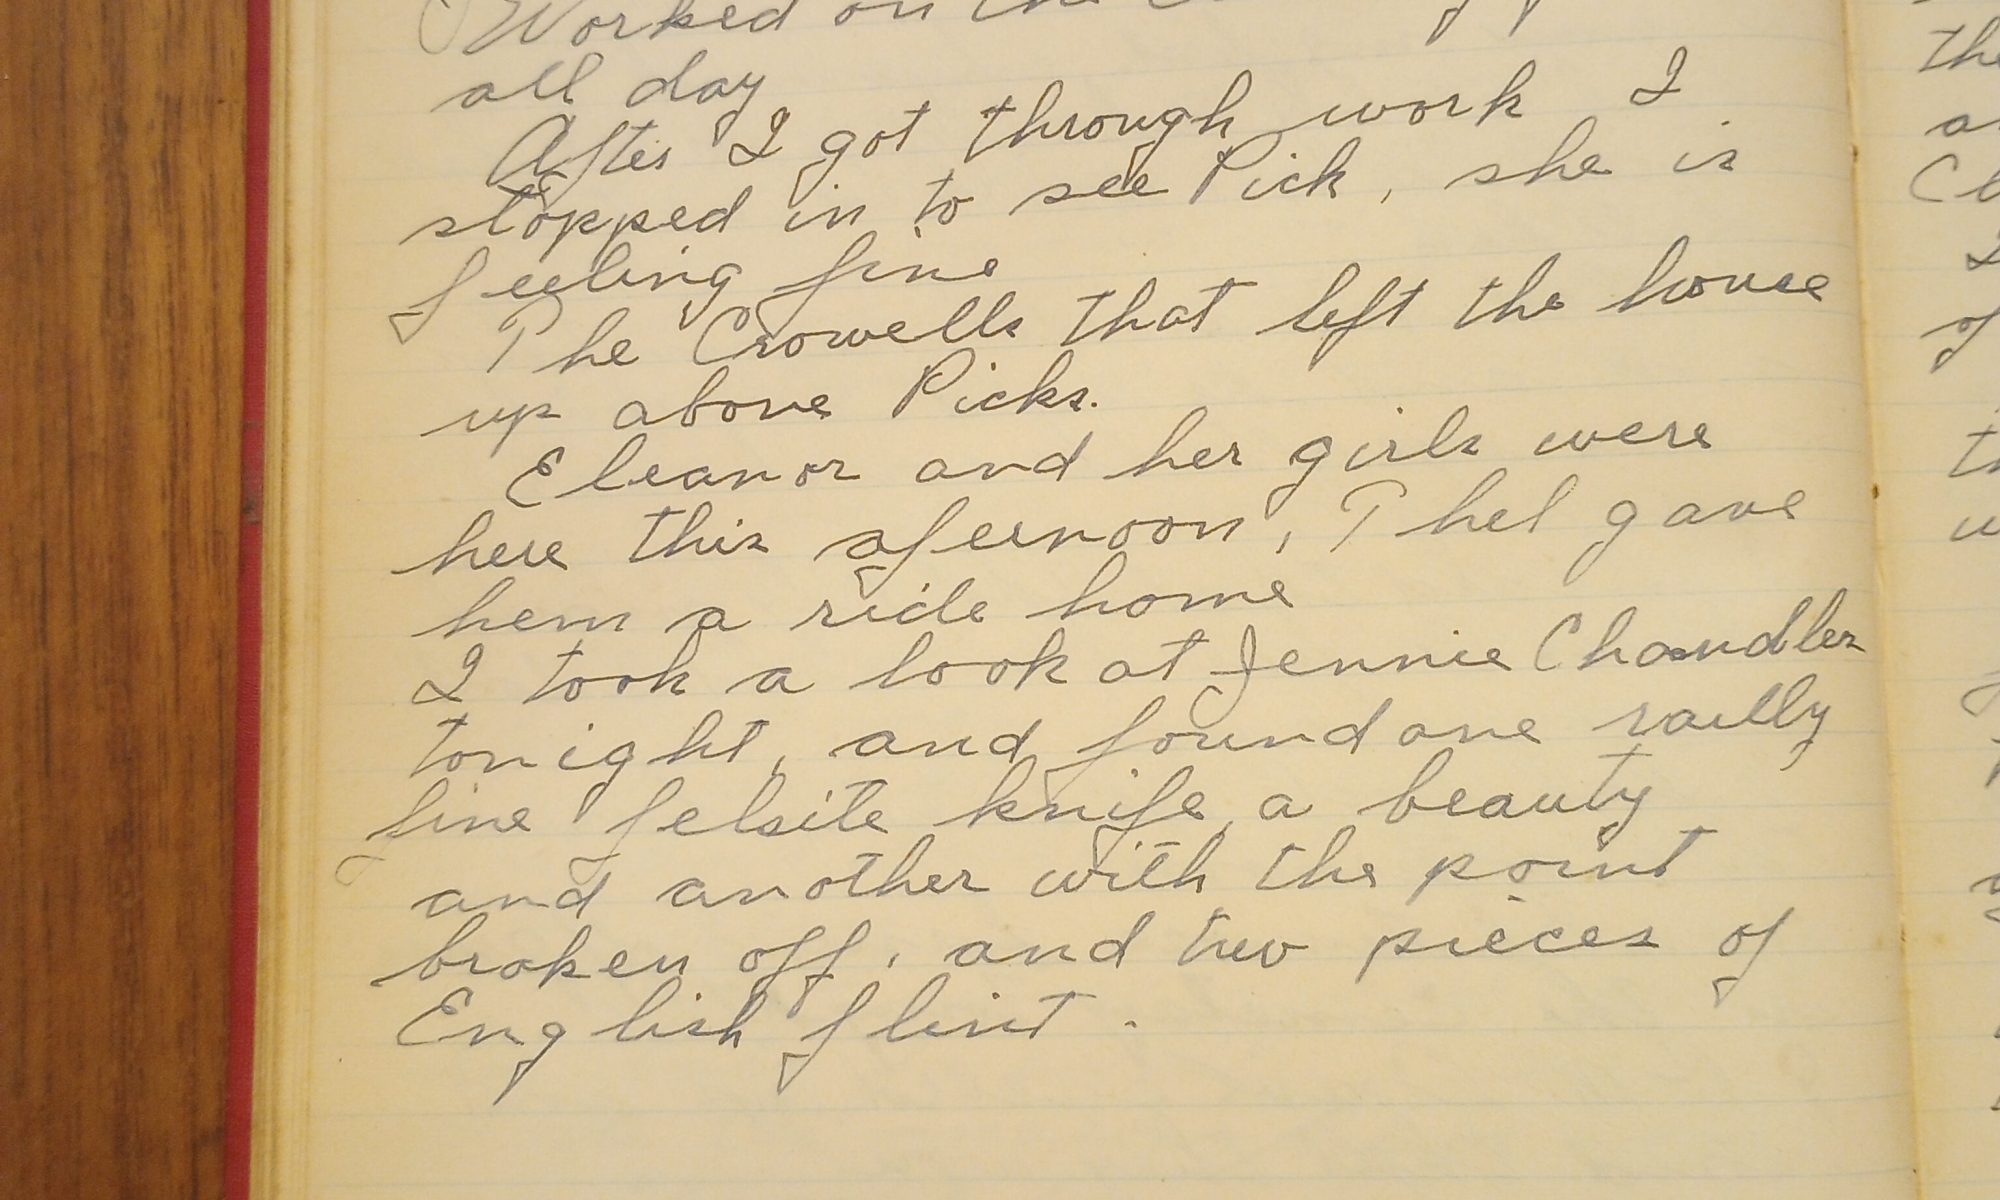 Worked on the
all day
After I got through work I
stopped in to see Pick, she is
feeling fine
The Crowells that left the house
up above Picks.
Eleanor and her girls were
here this afernoon, Thel gave
hem a ride home
I took a look at Jennie Chandler
tonight, and found one railly
fine felsite knife, a beauty
and another with the point
broken off, and two pieces of
English flint.
the
of